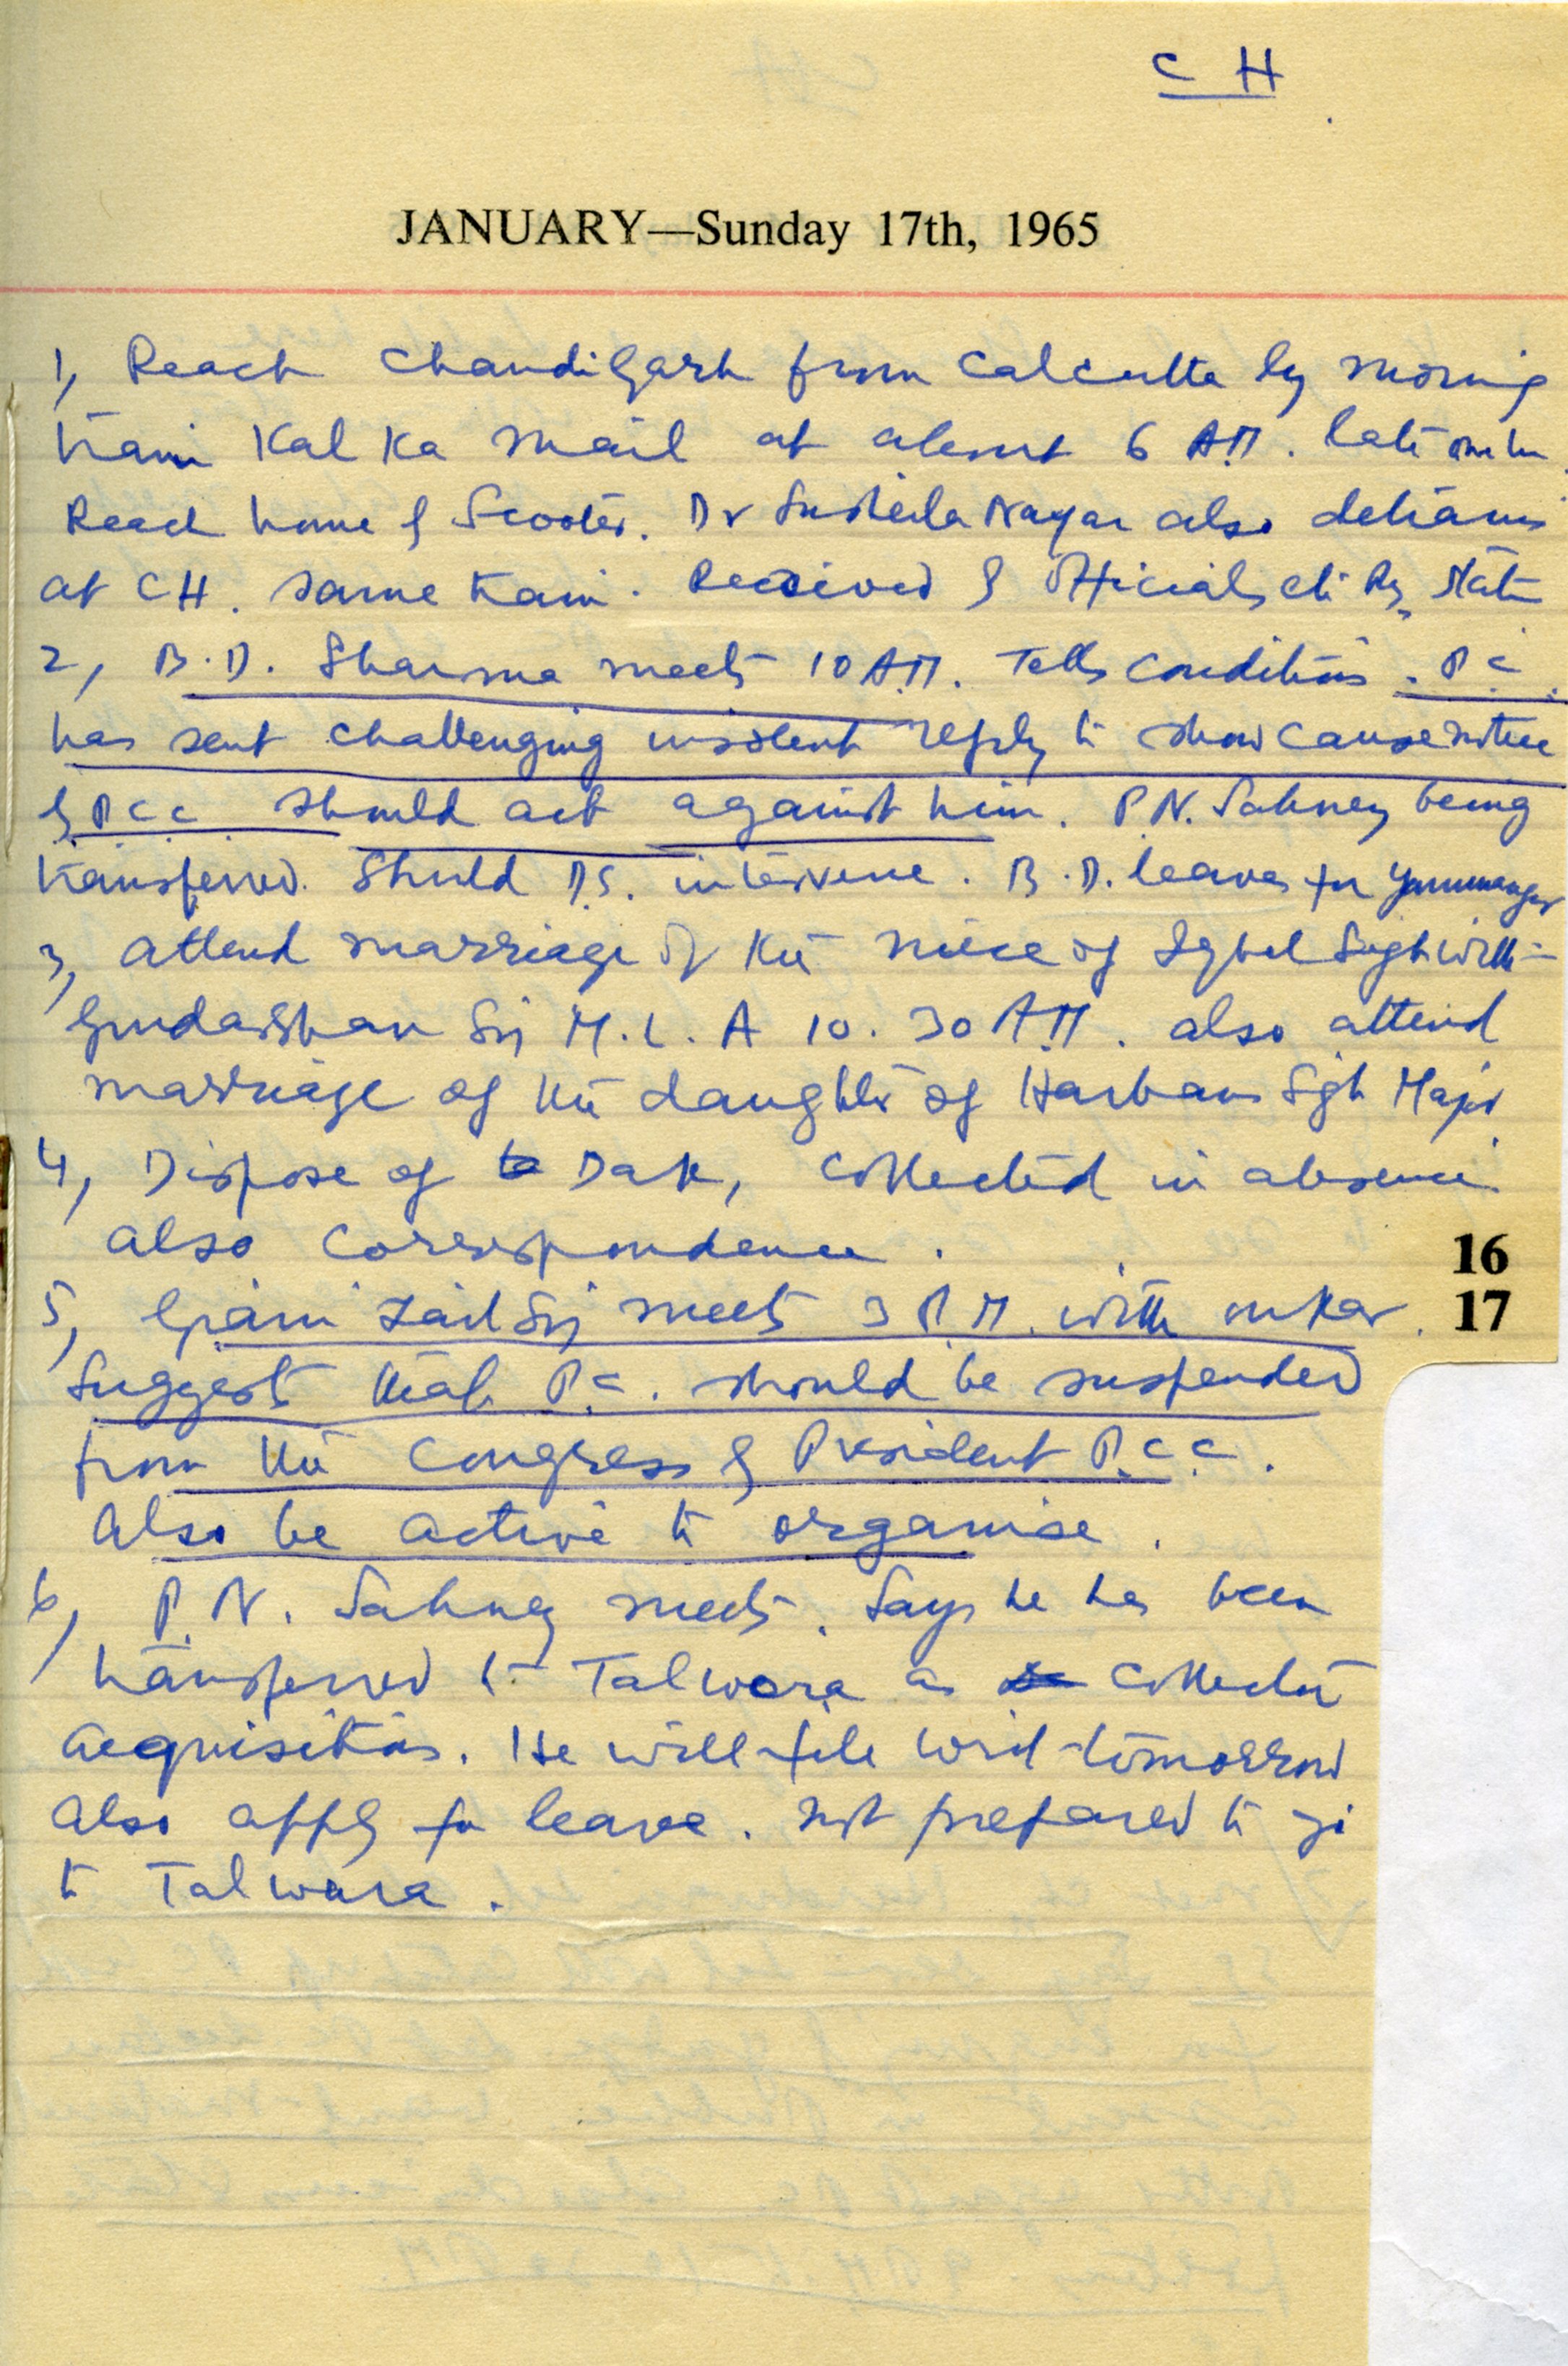 C H
JANUARY—Sunday 17th, 1965
1, Reach Chandigarh from Calcutta by morning
train Kalka Mail at about 6 A.M. late one hr.
Reach home by Scooter. Dr Susheila Nayar also detrains
at CH. same train. Received by officials etc Rly Statn
2, B.D. Sharma meets 10 A.M. Tells conditions. P.C.
has sent challenging insolent reply to show cause notice
by P.C.C. should act against him. P.N. Sahney being
transferred. Should D.S. intervene. B.D. leaves for Yamunanagar
3, attend marriage of the niece of Iqbal Singh with
Gurdarshan Sij M.L.A 10.30 A.M. also attend
marriage of the daughter of Harbans Sgh Major
4, Dispose of Dak, collected in absence
also correspondence.
16
5, Giani Zail Sij meets 3 P.M. with Onkar.
17
Suggest that P.C. should be suspended
from the Congress by President P.C.C.
Also be active to organise.
6, P.N. Sahney meets. Says he has been
transferred to Talwara as Collector
acquisitions. He will file writ tomorrow
also apply for leave. not prepared to go
to Talwara.